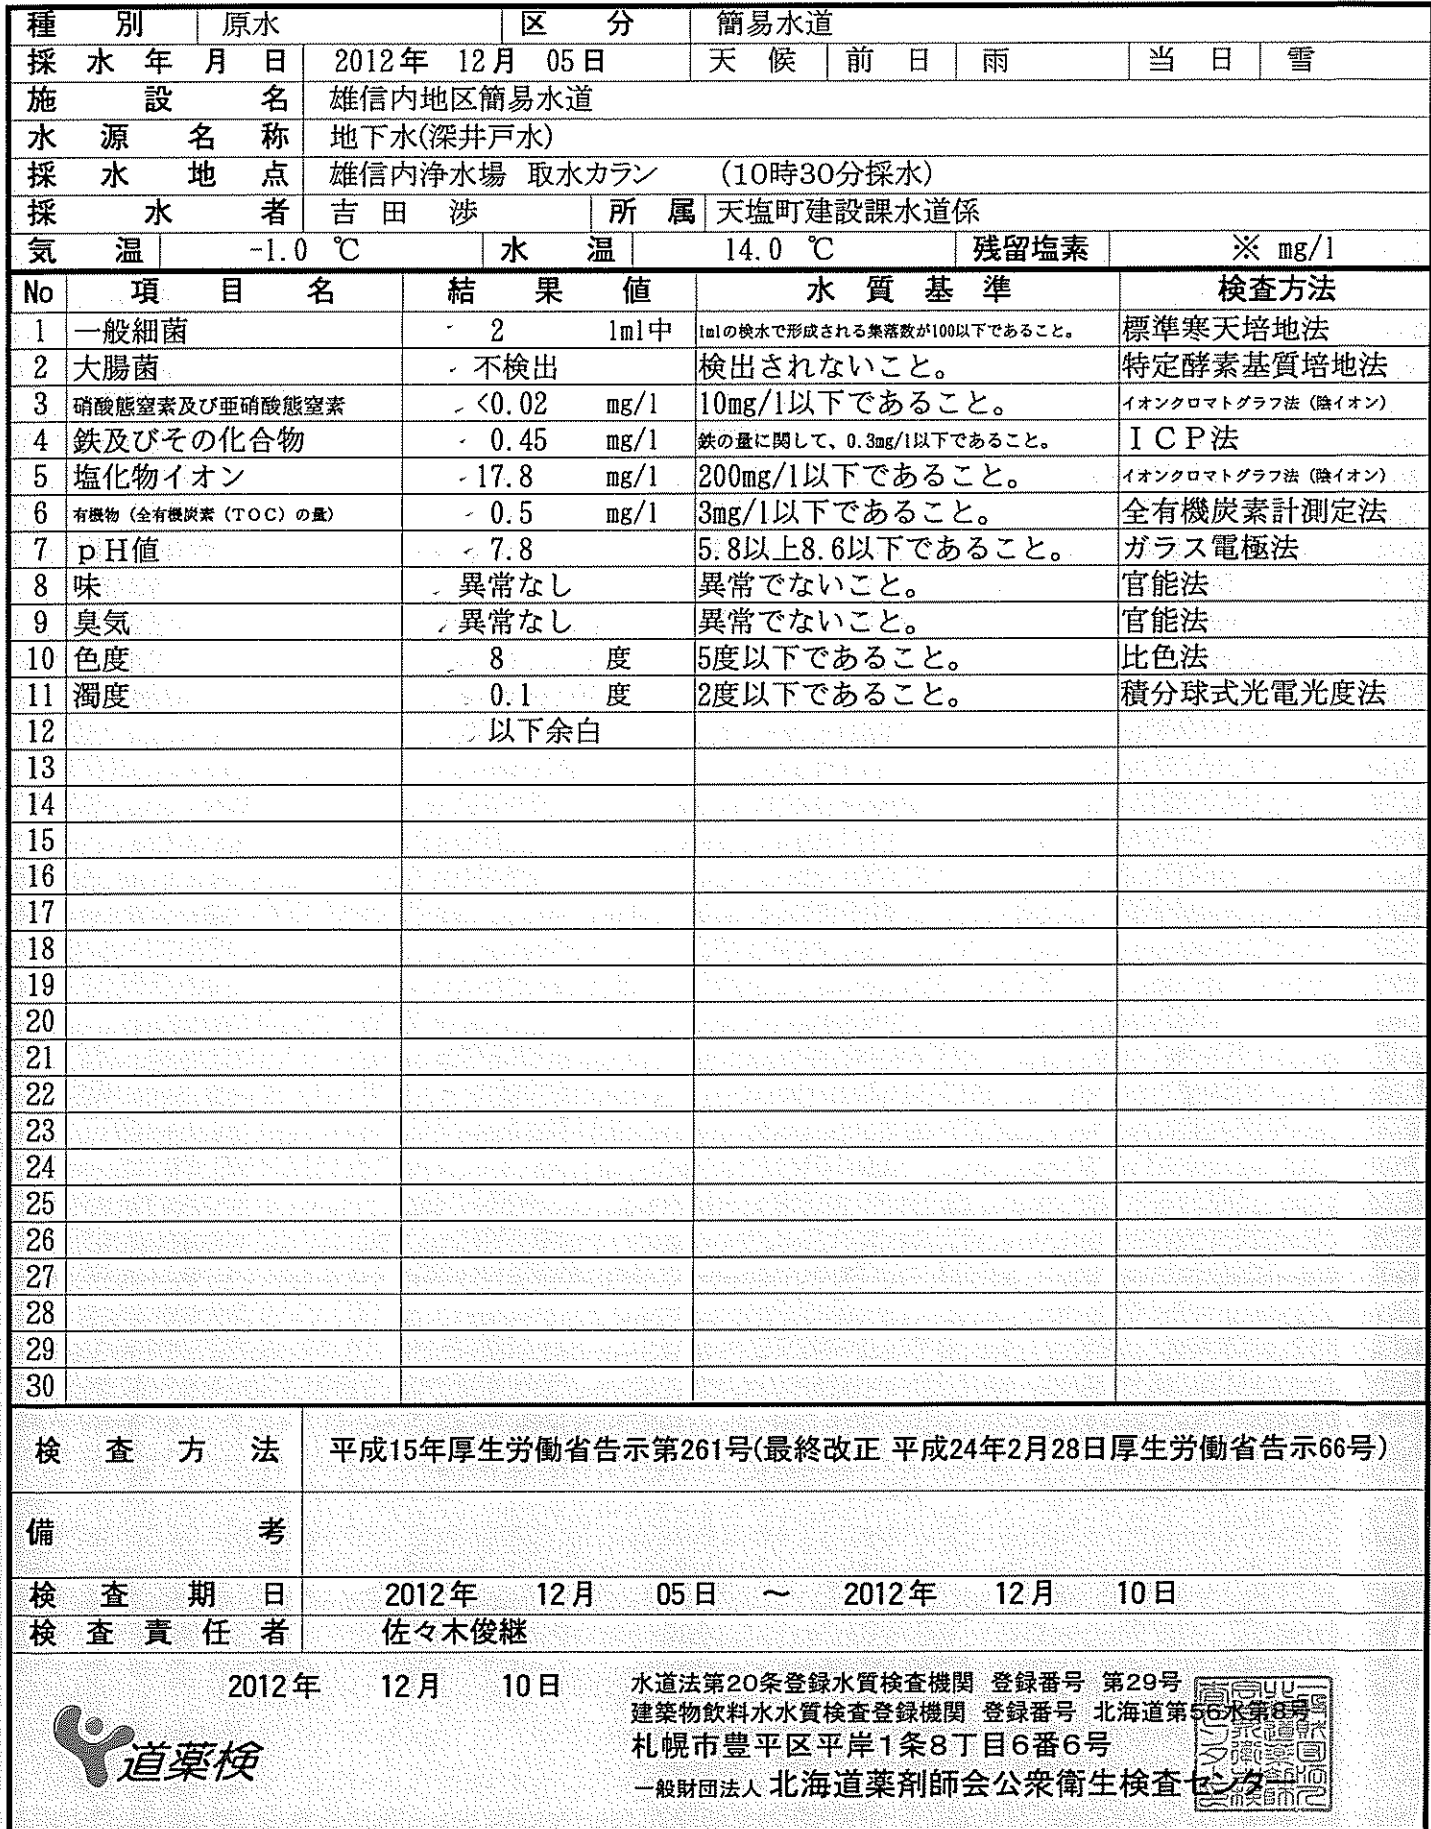 種別 原水 区分 簡易水道
採水年月日 2012年 12月 05日 天候 前日 雨 当日 雪
施設名 雄信内地区簡易水道
水源名称 地下水(深井戸水)
採水地点 雄信内浄水場 取水カラン (10時30分採水)
採水者 吉田 渉 所属 天塩町建設課水道係
気温 -1.0 ℃ 水温 14.0 ℃ 残留塩素 ※ mg/l
No 項目名 結果値 水質基準 検査方法
1 一般細菌 2 1ml中 1mlの検水で形成される集落数が100以下であること。 標準寒天培地法
2 大腸菌 不検出 検出されないこと。 特定酵素基質培地法
3 硝酸態窒素及び亜硝酸態窒素 <0.02 mg/l 10mg/l以下であること。 イオンクロマトグラフ法（陰イオン）
4 鉄及びその化合物 0.45 mg/l 鉄の量に関して、0.3mg/l以下であること。 ＩＣＰ法
5 塩化物イオン 17.8 mg/l 200mg/l以下であること。 イオンクロマトグラフ法（陰イオン）
6 有機物（全有機炭素（TOC）の量） 0.5 mg/l 3mg/l以下であること。 全有機炭素計測定法
7 pH値 7.8 5.8以上8.6以下であること。 ガラス電極法
8 味 異常なし 異常でないこと。 官能法
9 臭気 異常なし 異常でないこと。 官能法
10 色度 8 度 5度以下であること。 比色法
11 濁度 0.1 度 2度以下であること。 積分球式光電光度法
12 以下余白
13
14
15
16
17
18
19
20
21
22
23
24
25
26
27
28
29
30
検査方法 平成15年厚生労働省告示第261号(最終改正 平成24年2月28日厚生労働省告示66号)
備考
検査期日 2012年 12月 05日 ～ 2012年 12月 10日
検査責任者 佐々木俊継
2012年 12月 10日
水道法第20条登録水質検査機関 登録番号 第29号
建築物飲料水水質検査登録機関 登録番号 北海道第56水第8号
札幌市豊平区平岸1条8丁目6番6号
一般財団法人 北海道薬剤師会公衆衛生検査センター
道薬検